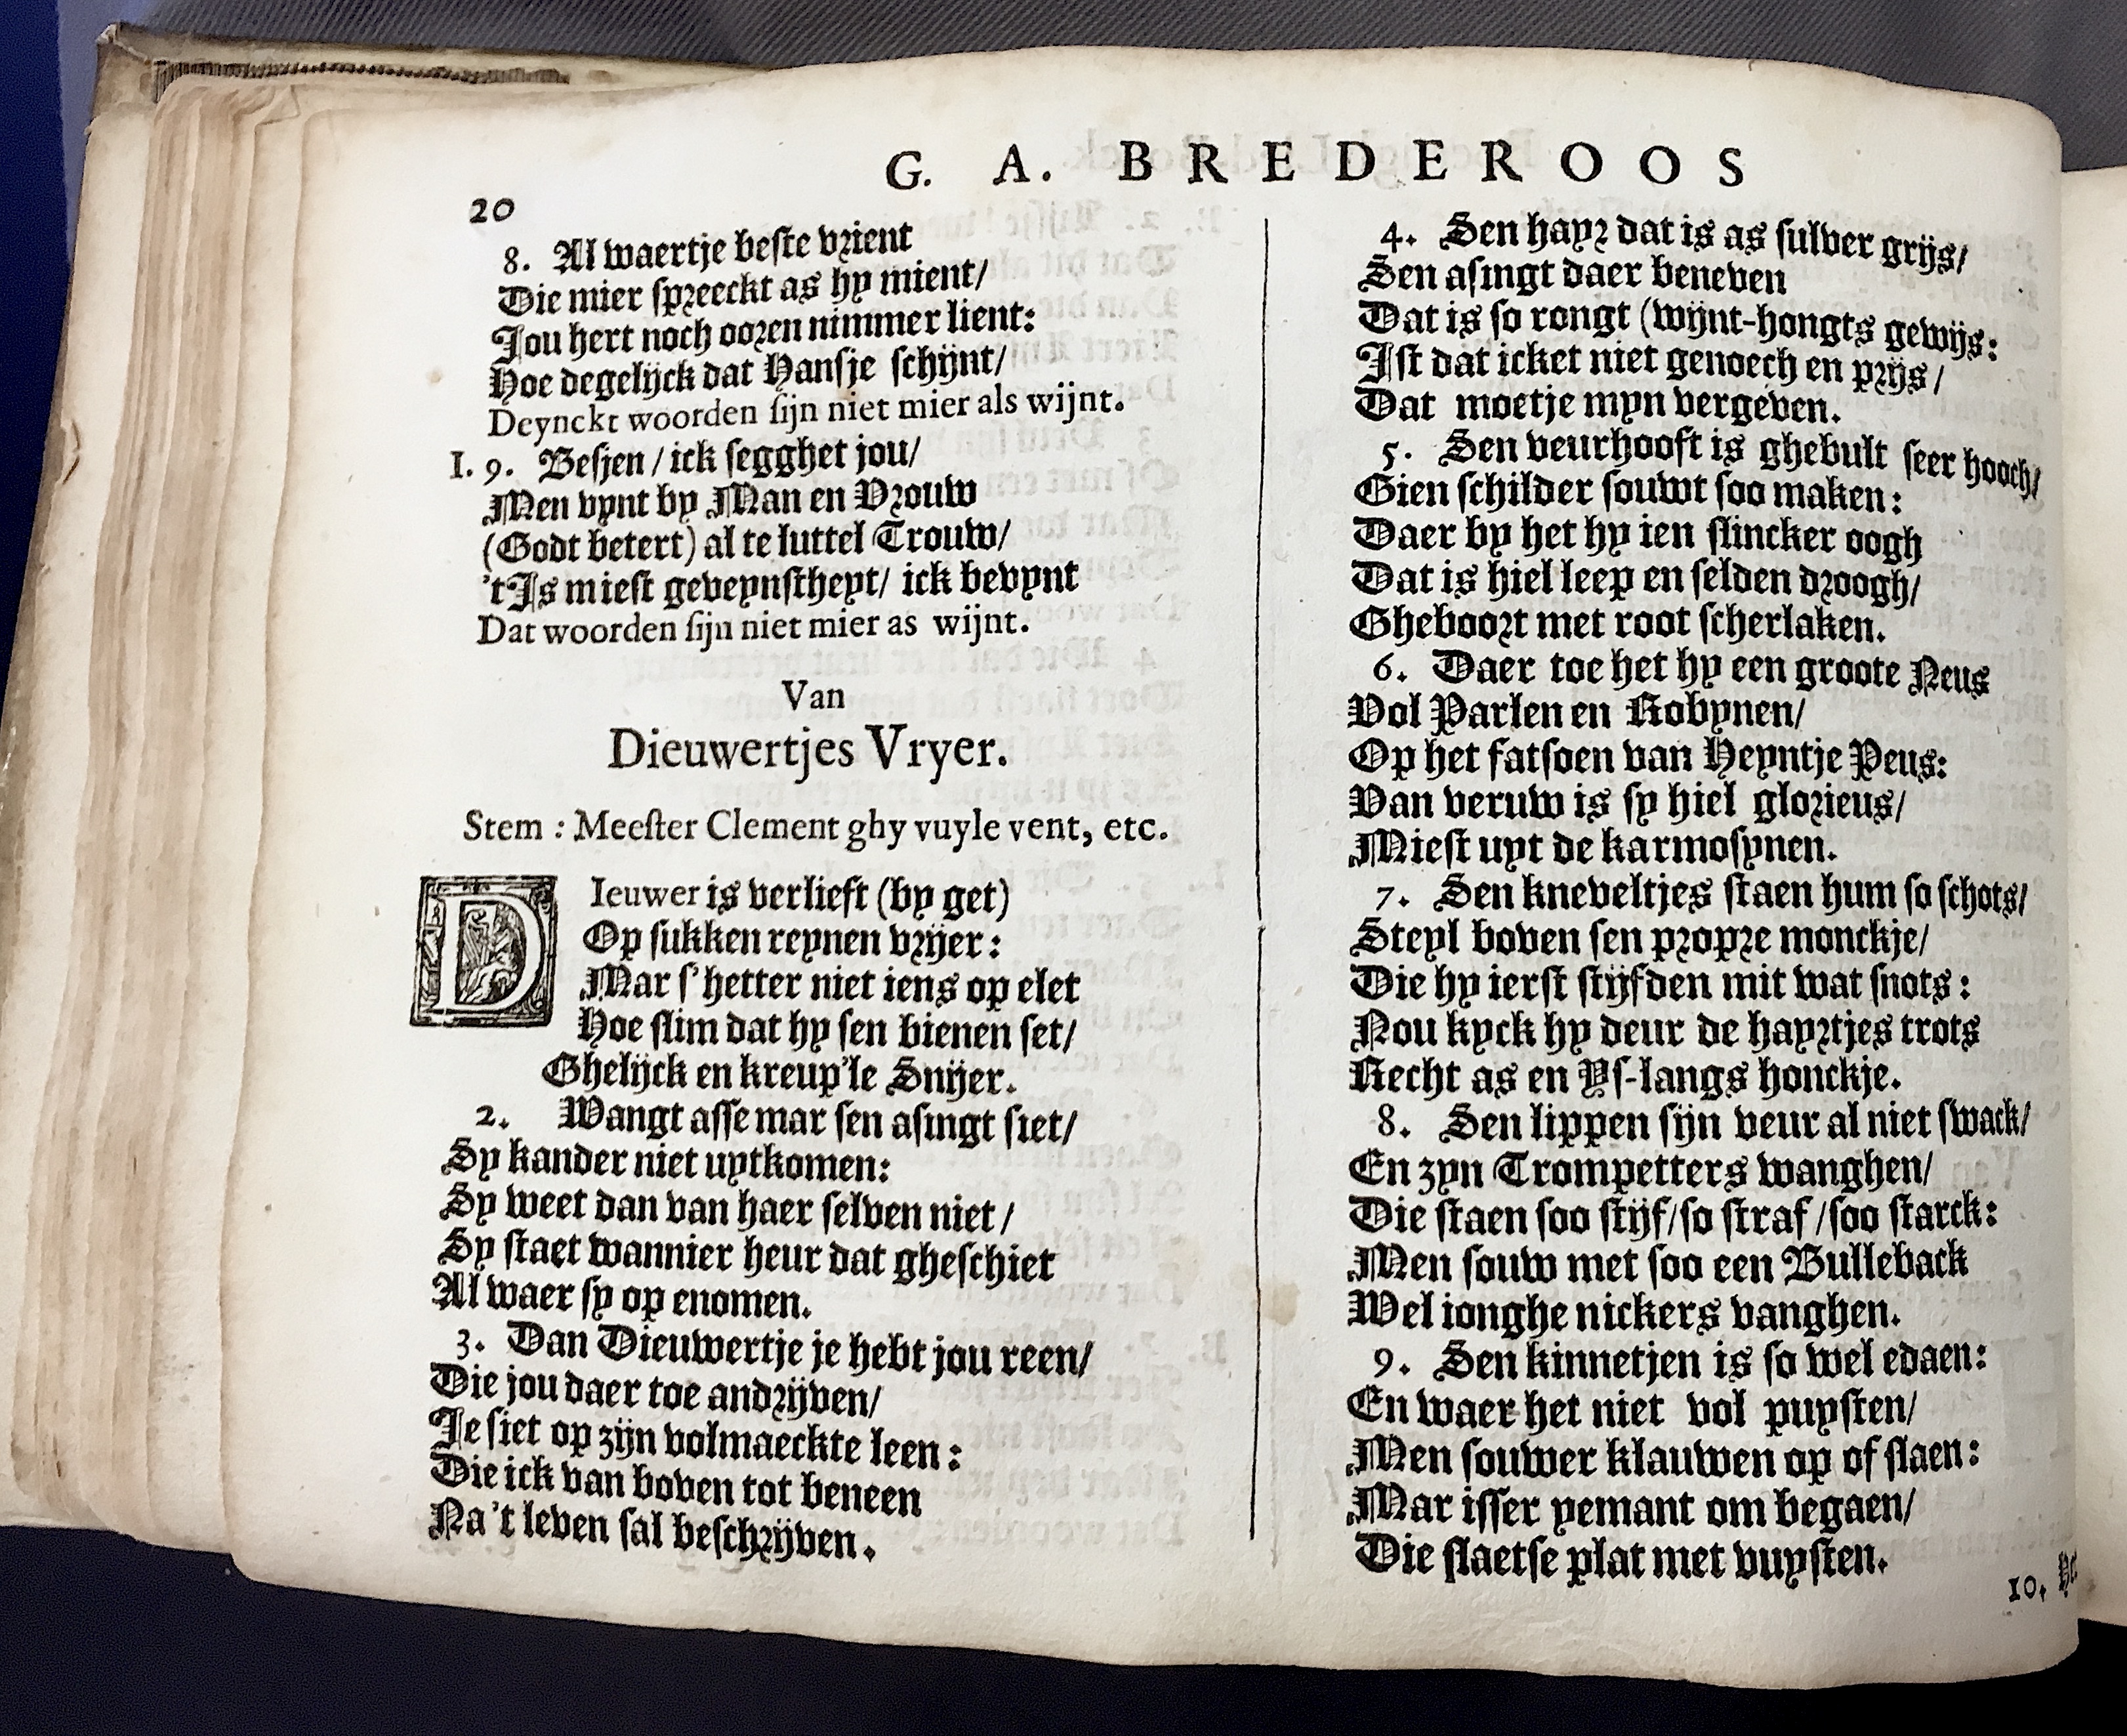 G. A. BREDEROOS
20
8. Al waertje beste vrient
Die mier spreeckt as hy mient/
Jou hert noch ooren nimmer lient:
Hoe degelijck dat Hansje schijnt/
Deynckt woorden sijn niet mier als wijnt.
I. 9. Besjen / ick segghet jou/
Men vynt by Man en Vrouw
(Godt betert) al te luttel Trouw/
'tIs miest geveynstheyt/ ick bevynt
Dat woorden sijn niet mier as wijnt.
Van
Dieuwertjes Vryer.
Stem : Meester Clement ghy vuyle vent, etc.
DIeuwer is verlieft (by get)
Op sukken reynen vrijer:
Mar s'hetter niet iens op elet
Hoe slim dat hy sen bienen set/
Ghelijck en kreup'le Snijer.
2. Wangt asse mar sen asingt siet/
Sy kander niet uytkomen:
Sy weet dan van haer selven niet/
Sy staet wannier heur dat gheschiet
Al waer sy op enomen.
3. Dan Dieuwertje je hebt jou reen/
Die jou daer toe andrijven/
Je siet op zijn volmaeckte leen:
Die ick van boven tot beneen
Na't leven sal beschrijven.
4. Sen hayr dat is as sulver grijs/
Sen asingt daer beneven
Dat is so rongt (wijnt-hongts gewijs:
Ist dat icket niet genoech en prijs/
Dat moetje myn vergeven.
5. Sen veurhooft is ghebult seer hooch/
Gien schilder souwt soo maken:
Daer by het hy ien slincker oogh
Dat is hiel leep en selden droogh/
Gheboort met root scherlaken.
6. Daer toe het hy een groote Neus
Vol Parlen en Robynen/
Op het fatsoen van Heyntje Peus:
Van veruw is sy hiel glorieus/
Miest uyt de karmosynen.
7. Sen kneveltjes staen hum so schots/
Steyl boven sen propre monckje/
Die hy ierst stijfden mit wat snots:
Nou kyck hy deur de hayrtjes trots
Recht as en Ys-langs honckje.
8. Sen lippen sijn veur al niet swack/
En zyn Trompetters wanghen/
Die staen soo stijf/so straf/soo starck:
Men souw met soo een Bulleback
Wel ionghe nickers vanghen.
9. Sen kinnetjen is so wel edaen:
En waer het niet vol puysten/
Men souwer klauwen op of slaen:
Mar isser yemant om begaen/
Die slaetse plat met vuysten.
10.